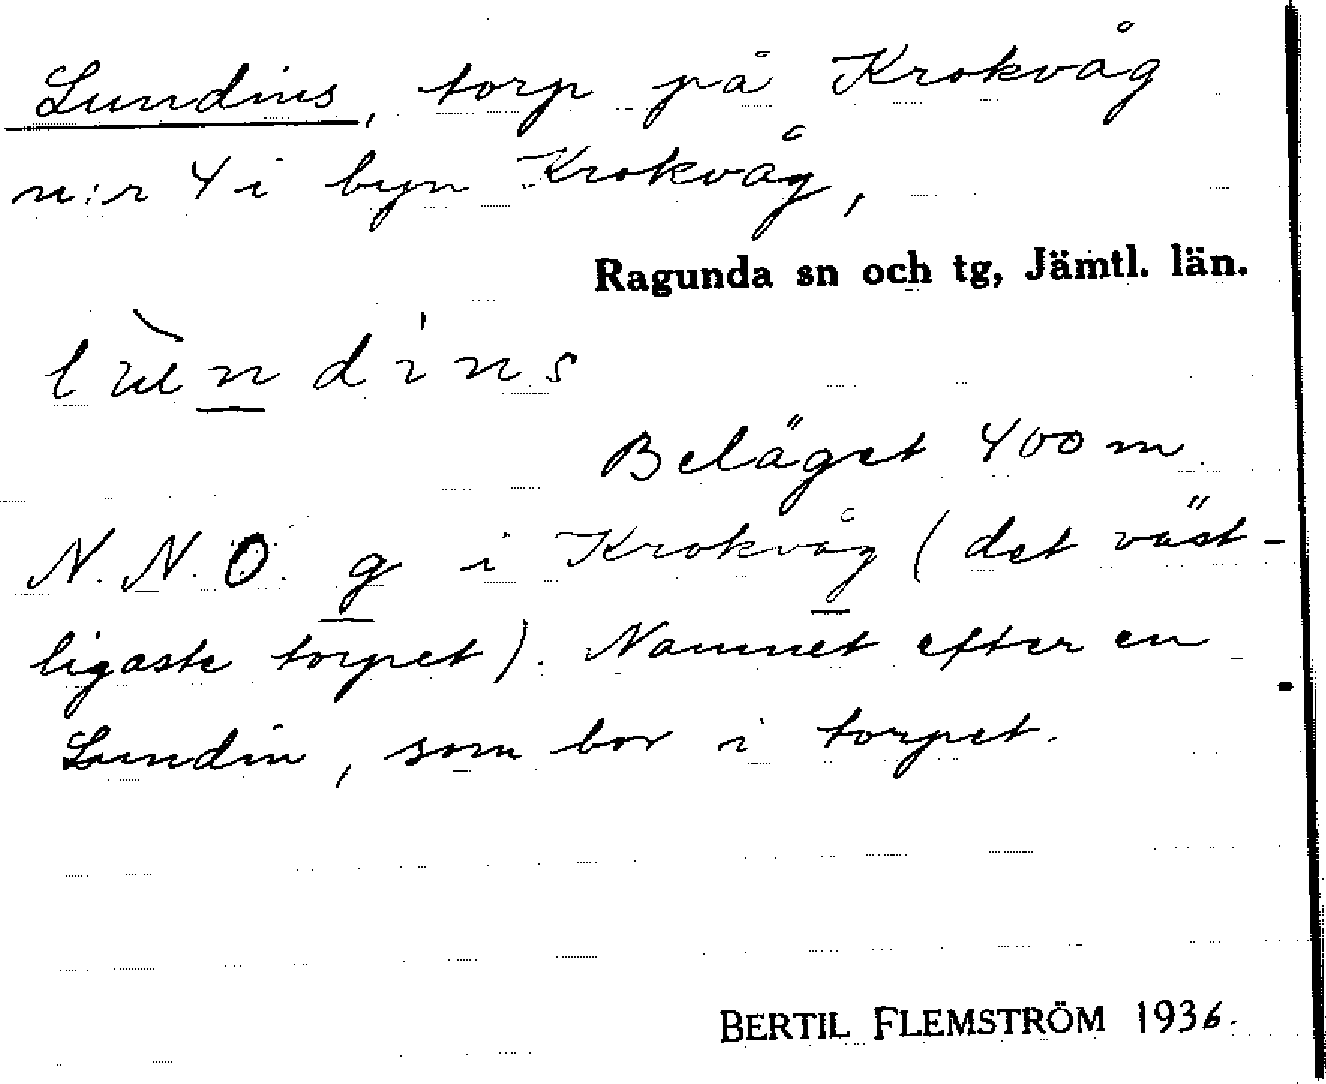 Lundins, torp på Krokvåg
n:r 4 i byn Krokvåg,
Ragunda sn och tg, Jämtl. län.
lùndins
Beläget 400 m
N.N.O. g i Krokvåg (det väst-
ligaste torpet). Namnet efter en
Lundin, som bor i torpet.
BERTIL FLEMSTRÖM 1936.